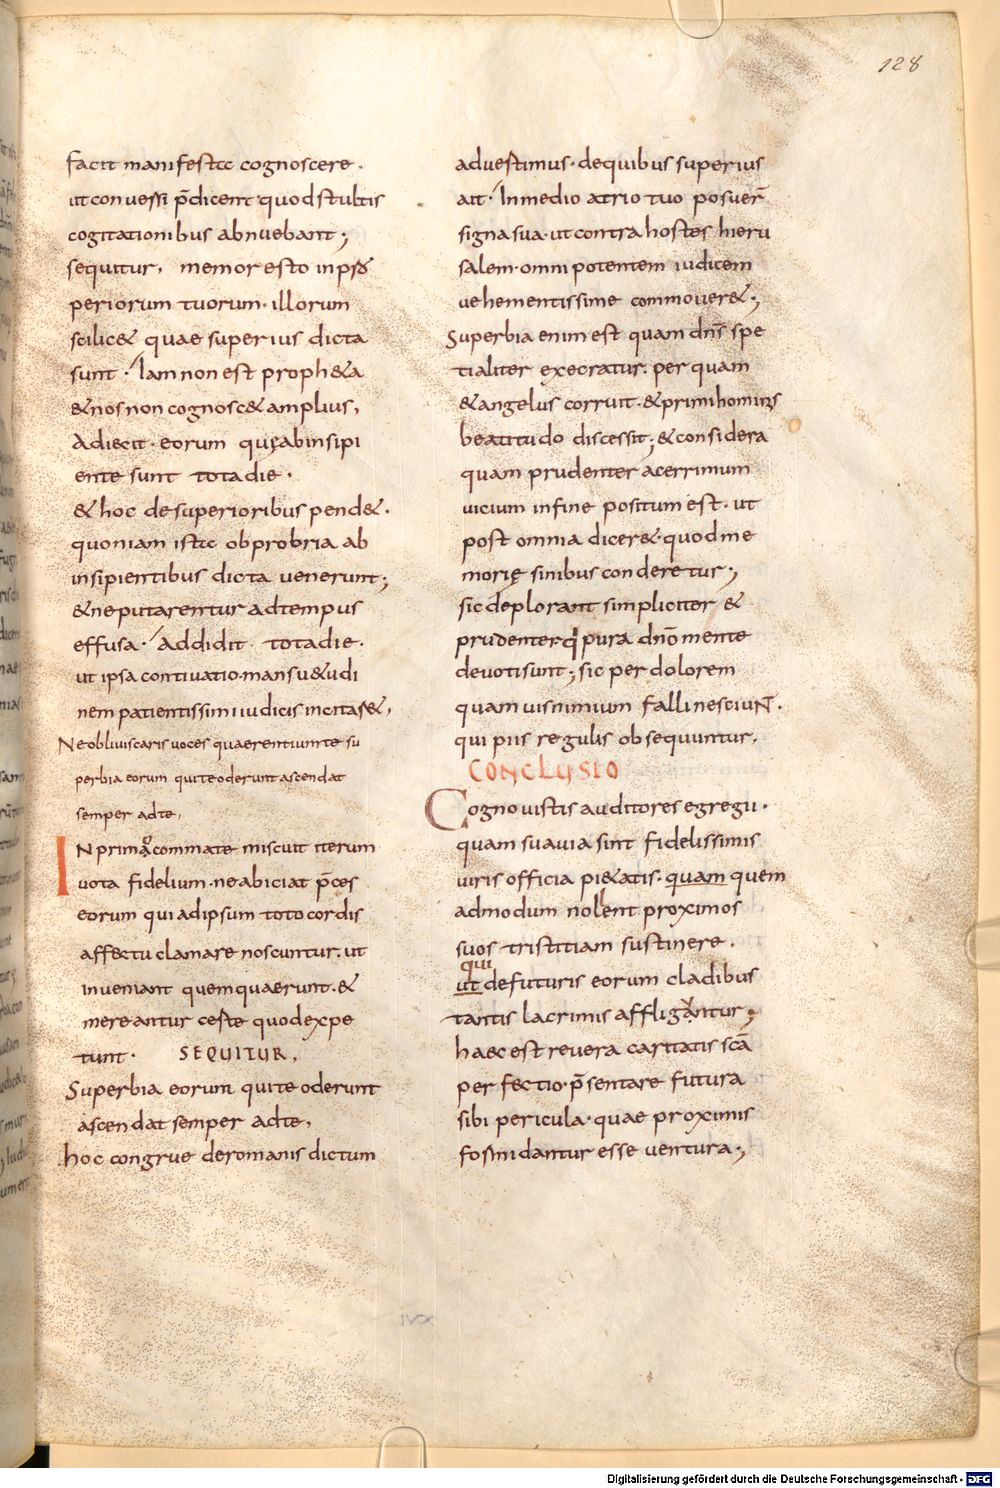 128
facit manifesta cognoscere.
ut conuessi p̄dicent quod stultis
cogitationibus abnuebant;
sequitur, memor esto inp
periorum tuorum. illorum
scilic& quae superius dicta
sunt. Iam non est proph&a
& nos non cognosc& amplius,
Adiecit. eorum quę ab insipi
ente sunt tota die.
& hoc de superioribus pend&.
quoniam ista obprobria ab
insipientibus dicta uenerunt;
& ne putarentur ad tempus
effusa. Addidit tota die.
ut ipsa continuatio mansu&udi
nem patientissimi iudicis incitass&,
Ne obliuiscaris uoces quaerentium te su
perbia eorum qui te oderunt ascendat
semper ad te,
IN prima commate miscuit iterum
uota fidelium. ne abiciat p̄ces
eorum qui ad ipsum toto cordis
affectu clamare noscuntur. ut
inueniant quem quaerunt. &
mereantur caeste quod expe
tunt. SEQUITUR,
Superbia eorum qui te oderunt
ascendat semper ad te,
hoc congrue de romanis dictum
aduestimus. de quibus superius
ait. In medio atrio tuo posuer̄
signa sua. ut contra hostes hieru
salem. omnipotentem iudicem
uehementissime commouer&;
Superbia enim est quam dn̄s spe
tialiter execratur. per quam
& angelus corruit. & primi hominis
beatitudo discessit; & considera
quam prudenter acerrimum
uicium in fine positum est. ut
post omnia dicer& quod me
morię sinibus conderetur;
sic deplorant simpliciter &
prudenter q pura dn̄o mente
deuoti sunt; sic per dolorem
quamuis nimium falli nesciuNt.
qui piis regulis obsequuntur.
CONCLUSIO
Cognouistis auditores egregii.
quam suauia sint fidelissimis
uiris officia pi&atis. quam quem
admodum nolent proximos
suos tristitiam sustinere.
qui
ut de futuris eorum cladibus
tantis lacrimis affligantur;
haec est reuera caritatis scā
perfectio. p̄sentare futura
sibi pericula. quae proximis
formidantur esse uentura;
Digitalisierung gefördert durch die Deutsche Forschungsgemeinschaft - DFG